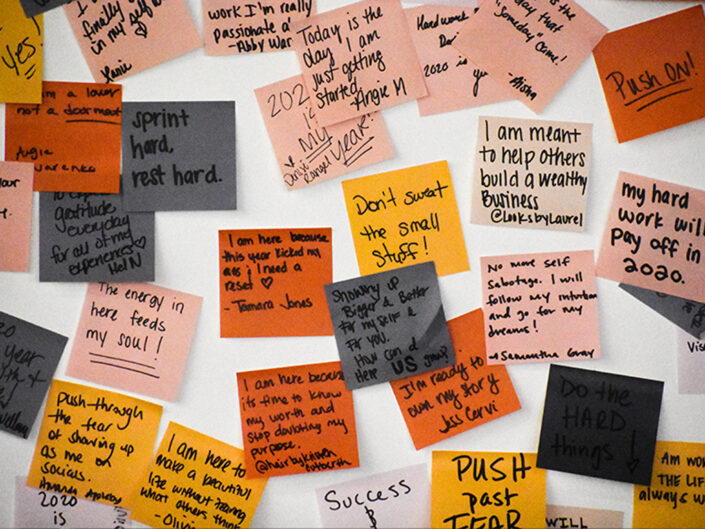 Yes
finally
in my self
work I'm really
passionate
-Abby
Today is the
day I am
just getting
started
-Angie M
Hard work
2020 is
that
"someday" come!
-Aisha
Push ON!
a lover
not a doormat
sprint
hard,
rest hard.
202
MY
YEAR
I am meant
to help others
build a wealthy
Business
@LooksbyLaurel
Don't sweat
the small
stuff!
my hard
work will
pay off in
2020.
gratitude
everyday
for all of my
experiences
I am here because
this year kicked my
ass & I need a
reset
- Tamara Jones
No more self
Sabotage. I will
follow my intuition
and go for my
dreams!
-Samantha Gray
The energy in
here feeds
my soul!
Showing up
Bigger & Better
For my self &
For you.
How can I
Help US grow?
I am here because
its time to know
my worth and
stop doubting my
purpose.
I'm ready to
own my story
Jess Cervi
Do the
HARD
things!
push through
the fear
of showing up
as me on
socials.
I am here to
make a beautiful
life without fearing
what others think
2020
is
Success
$
PUSH
past
FEAR
WILL
THE LIFE
always